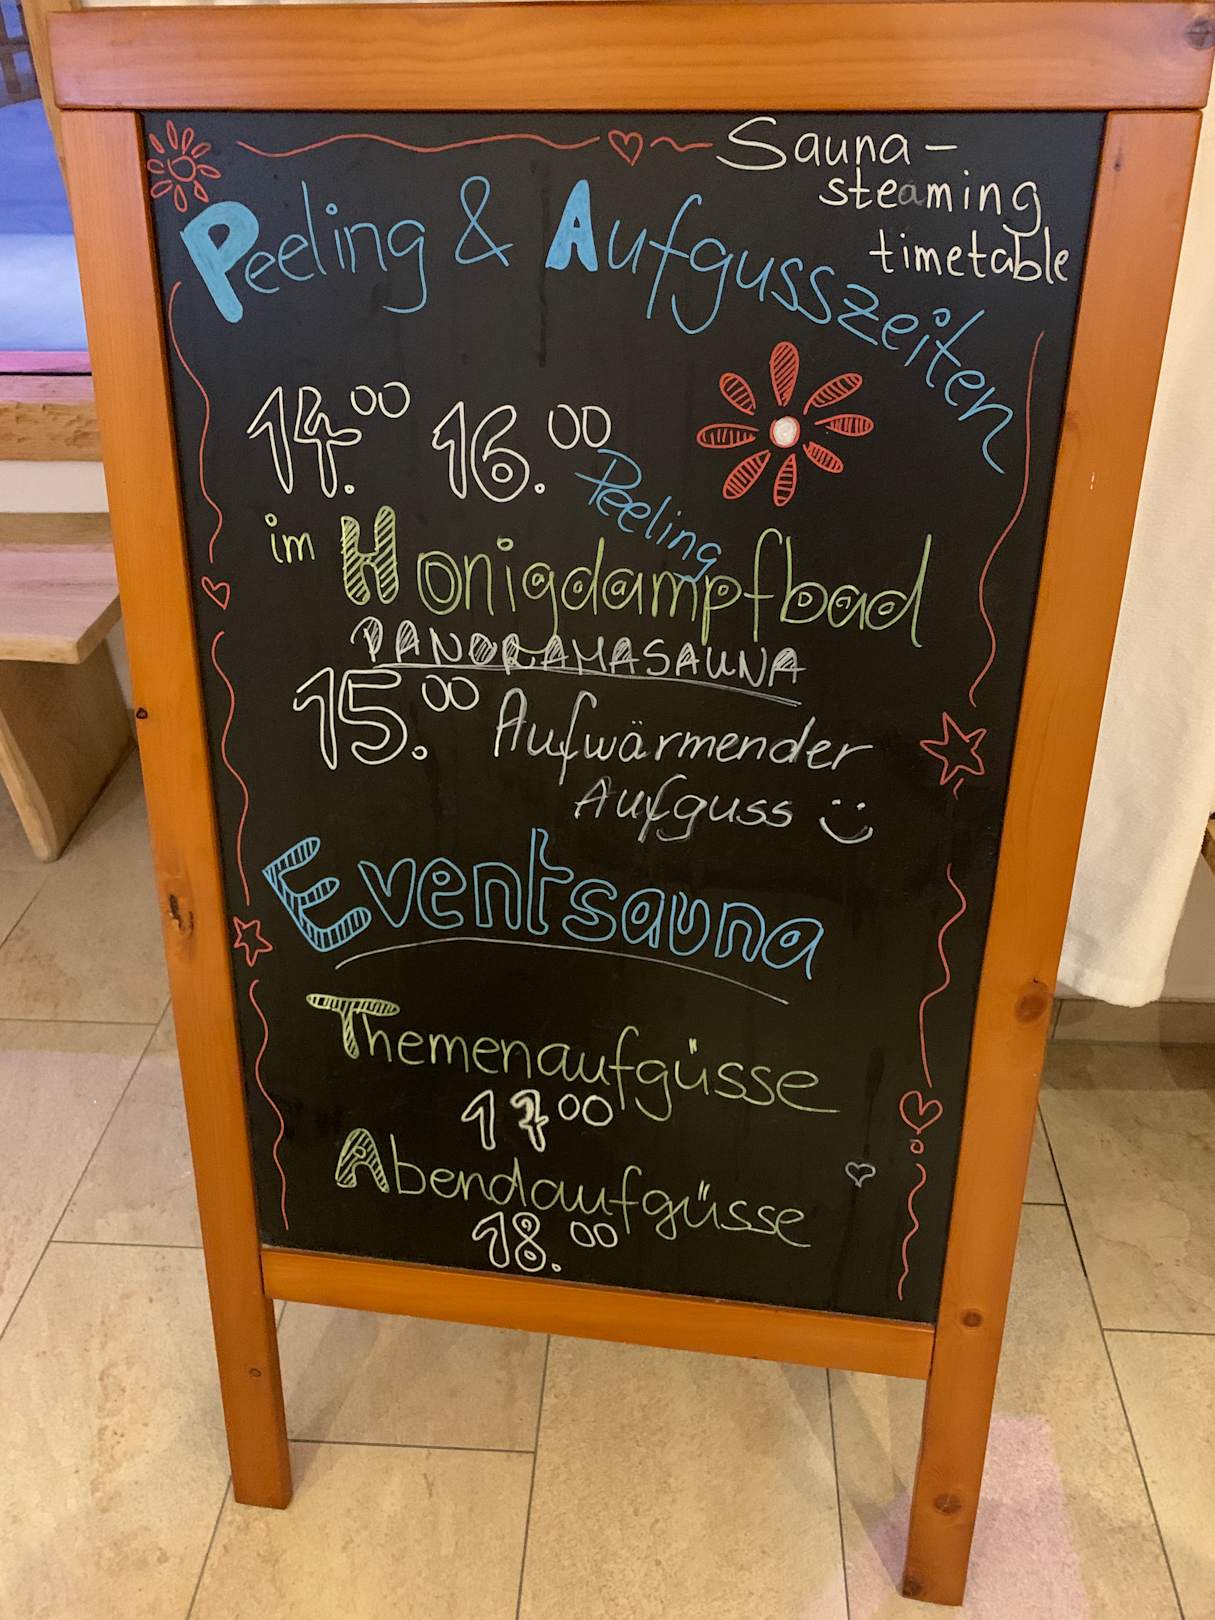 Sauna-
steaming
timetable
Peeling & Aufgusszeiten
14.00 16.00 Peeling
im Honigdampfbad
PANORAMASAUNA
15.00 Aufwärmender
Aufguss
Eventsauna
Themenaufgüsse
17 00
Abendaufgüsse
18.00